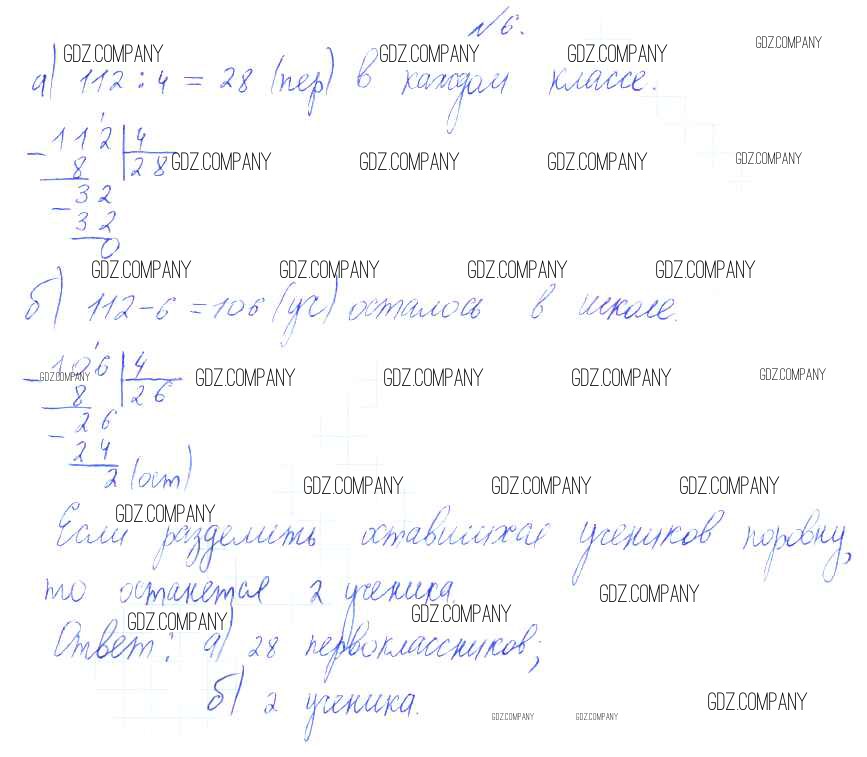 №6.
GDZ.COMPANY GDZ.COMPANY GDZ.COMPANY GDZ.COMPANY
а) 112 : 4 = 28 (пер) в каждом классе.
- 112 | 4
8 | 28
GDZ.COMPANY GDZ.COMPANY GDZ.COMPANY GDZ.COMPANY
- 32
32
0
GDZ.COMPANY GDZ.COMPANY GDZ.COMPANY GDZ.COMPANY
б) 112 - 6 = 106 (уч) осталось в школе.
- 106 | 4
GDZ.COMPANY GDZ.COMPANY GDZ.COMPANY GDZ.COMPANY GDZ.COMPANY
8 | 26
- 26
24
2 (ост)
GDZ.COMPANY GDZ.COMPANY GDZ.COMPANY
GDZ.COMPANY
Если разделить оставшихся учеников поровну,
то останется 2 ученика.
GDZ.COMPANY
GDZ.COMPANY GDZ.COMPANY
Ответ: а) 28 первоклассников;
б) 2 ученика.
GDZ.COMPANY
GDZ.COMPANY GDZ.COMPANY